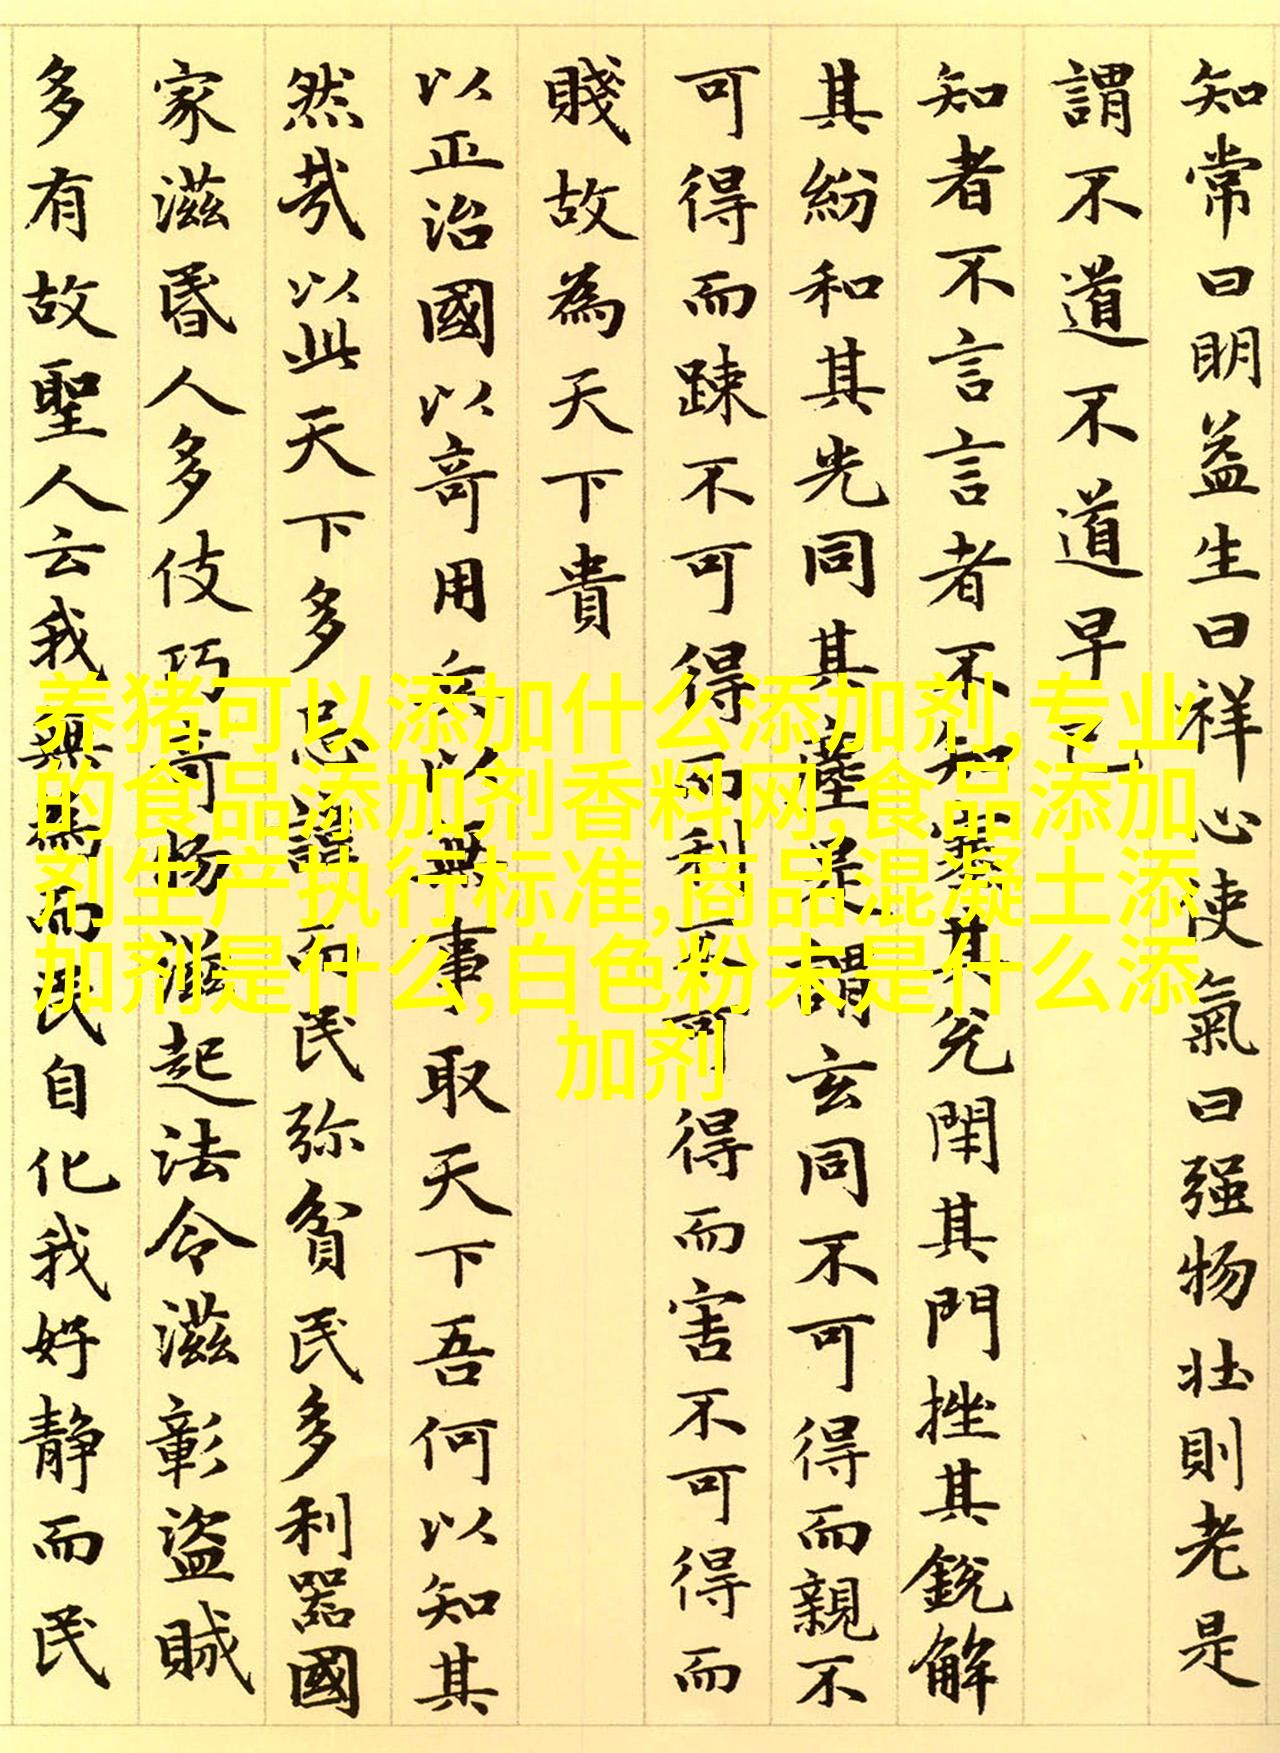 知常曰明益生曰祥心使氣曰强物壯則老是
謂不道不道早已
知者不言言者不知塞其兌閉其門挫其銳解
其紛和其光同其塵是謂玄同不可得而親不
可得而踈不可得而利不可得而害不可得而
賤故為天下貴
以正治國以奇用兵以無事取天下吾何以知其
然哉以此天下多忌諱而民弥貧民多利器國
家滋昏人多伎巧奇物滋起法令滋彰盜賊
多有故聖人云我無為而民自化我好靜而民
养猪可以添加什么添加剂,专业
的食品添加剂香料网,食品添加
剂生产执行标准,商品混凝土添
加剂是什么,白色粉末是什么添
加剂